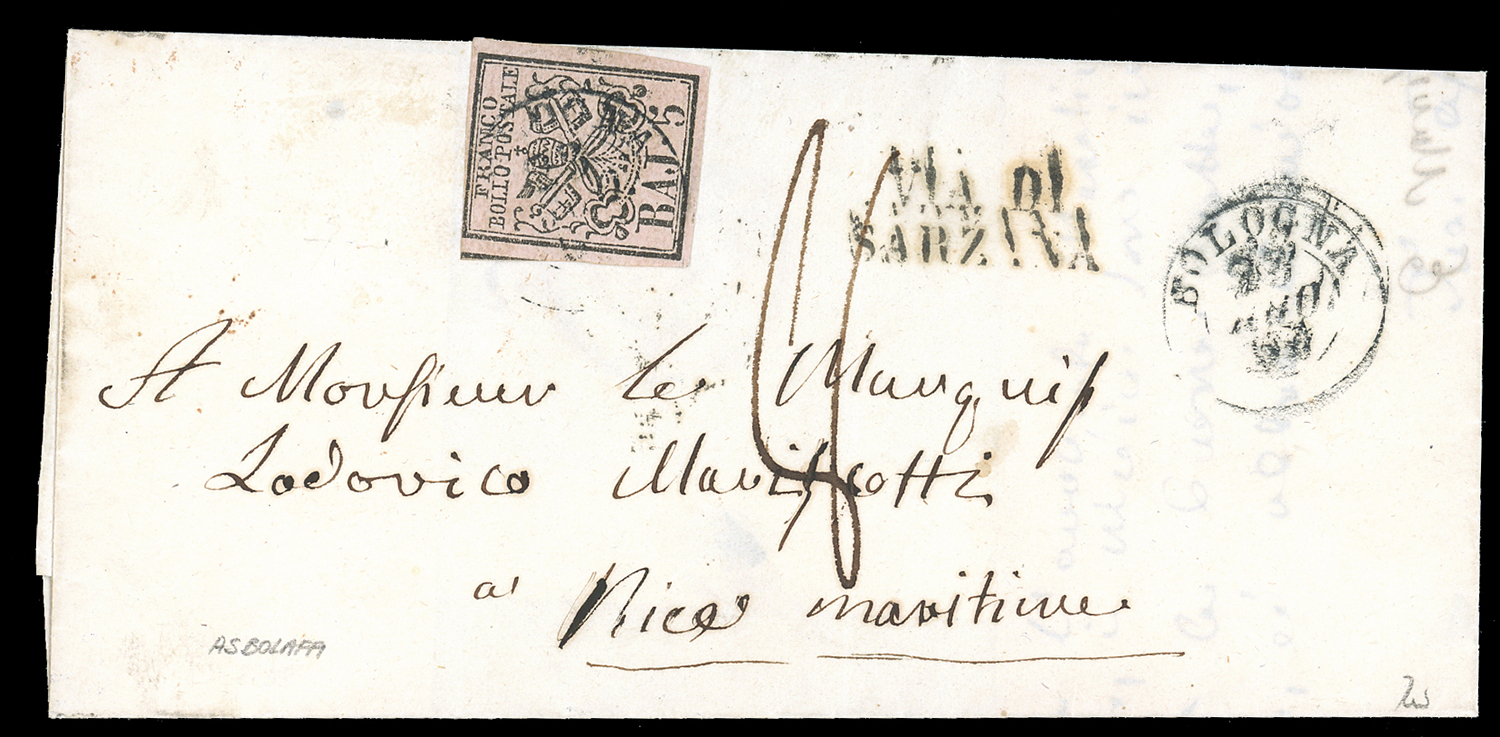 FRANCO
BOLLO POSTALE
BAJ 5
VIA DI
SARZANA
BOLOGNA
A Monsieur le Marquis
Lodovico Mariscotti
a' Nice maritime
ASBOLAFFI